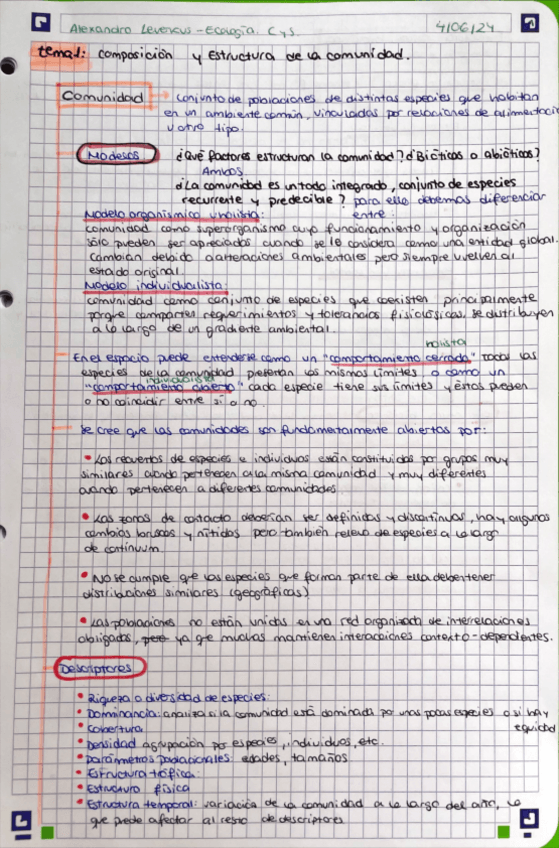 Alexandra Leverkus - Ecología. C y S.
4/06/24
tema1: composición y Estructura de la comunidad.
Comunidad → conjunto de poblaciones de distintas especies que habitan
en un ambiente común, vinculadas por relaciones de alimentació
u otro tipo.
Modelos ¿Qué factores estructuran la comunidad? ¿Bióticos o abióticos?
Ambos
¿La comunidad es un todo integrado, conjunto de especies
recurrente y predecible? para ello debemos diferenciar
entre:
Modelo organísmico u holista:
comunidad como superorganismo cuyo funcionamiento y organización
sólo pueden ser apreciados cuando se le considera como una entidad global.
Cambian debido a alteraciones ambientales pero siempre vuelven al
estado original.
Modelo individualista:
comunidad como conjunto de especies que coexisten principalmente
porque comparten requerimientos y tolerancias fisiológicas. se distribuyen
a lo largo de un gradiente ambiental.
holista
En el espacio puede entenderse como un "comportamiento cerrado" todas las
especies de la comunidad presentan los mismos límites o como un
individualista
"comportamiento abierto" cada especie tiene sus límites y éstos pueden
o no coincidir entre sí o no.
Se cree que las comunidades son fundamentalmente abiertas por:
• Los recuentos de especies e individuos están constituidos por grupos muy
similares cuando pertenecen a la misma comunidad y muy diferentes
cuando pertenecen a diferentes comunidades
• Las zonas de contacto deberían ser definidas y discontinuas, hay algunos
cambios bruscos y nítidos pero también relevo de especies a lo largo
de continuum.
• No se cumple que las especies que forman parte de ella deben tener
distribuciones similares (geográficas)
• Las poblaciones no están unidas en una red organizada de interrelaciones
obligadas, pero ya que muchas mantienen interacciones contexto-dependientes.
Descriptores
• Riqueza o diversidad de especies:
• Dominancia: analiza si la comunidad está dominada por unas pocas especies o si hay
equidad
• Cobertura
• Densidad agrupación por especies, individuos, etc.
• Parámetros poblacionales: edades, tamaños
• Estructura trófica:
• Estructura física
• Estructura temporal: variación de la comunidad a lo largo del año, lo
que puede afectar al resto de descriptores